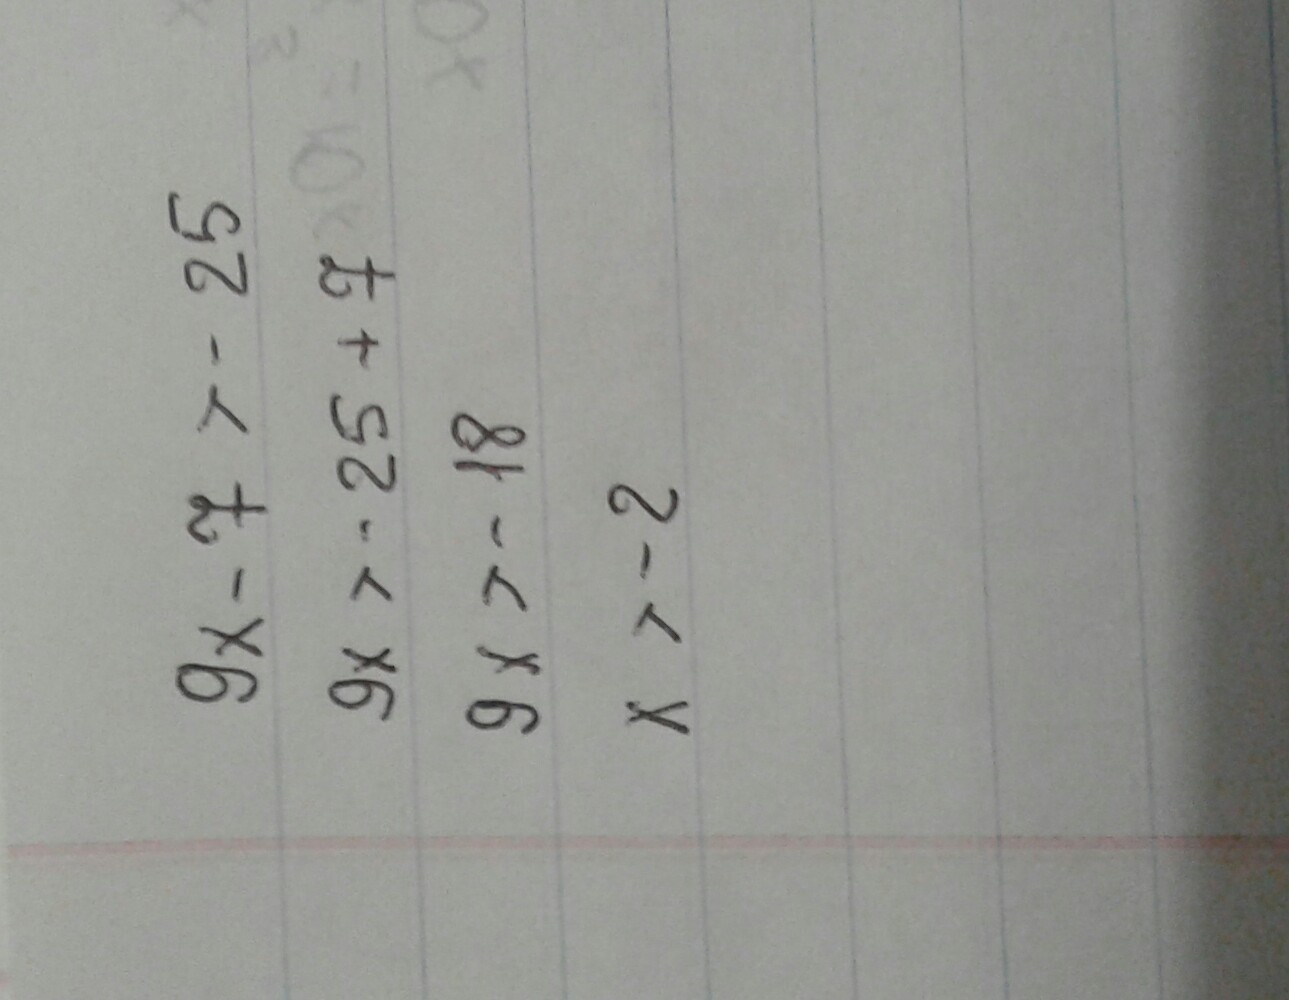 9x - 7 > - 25
9x > - 25 + 7
9x > - 18
x > - 2